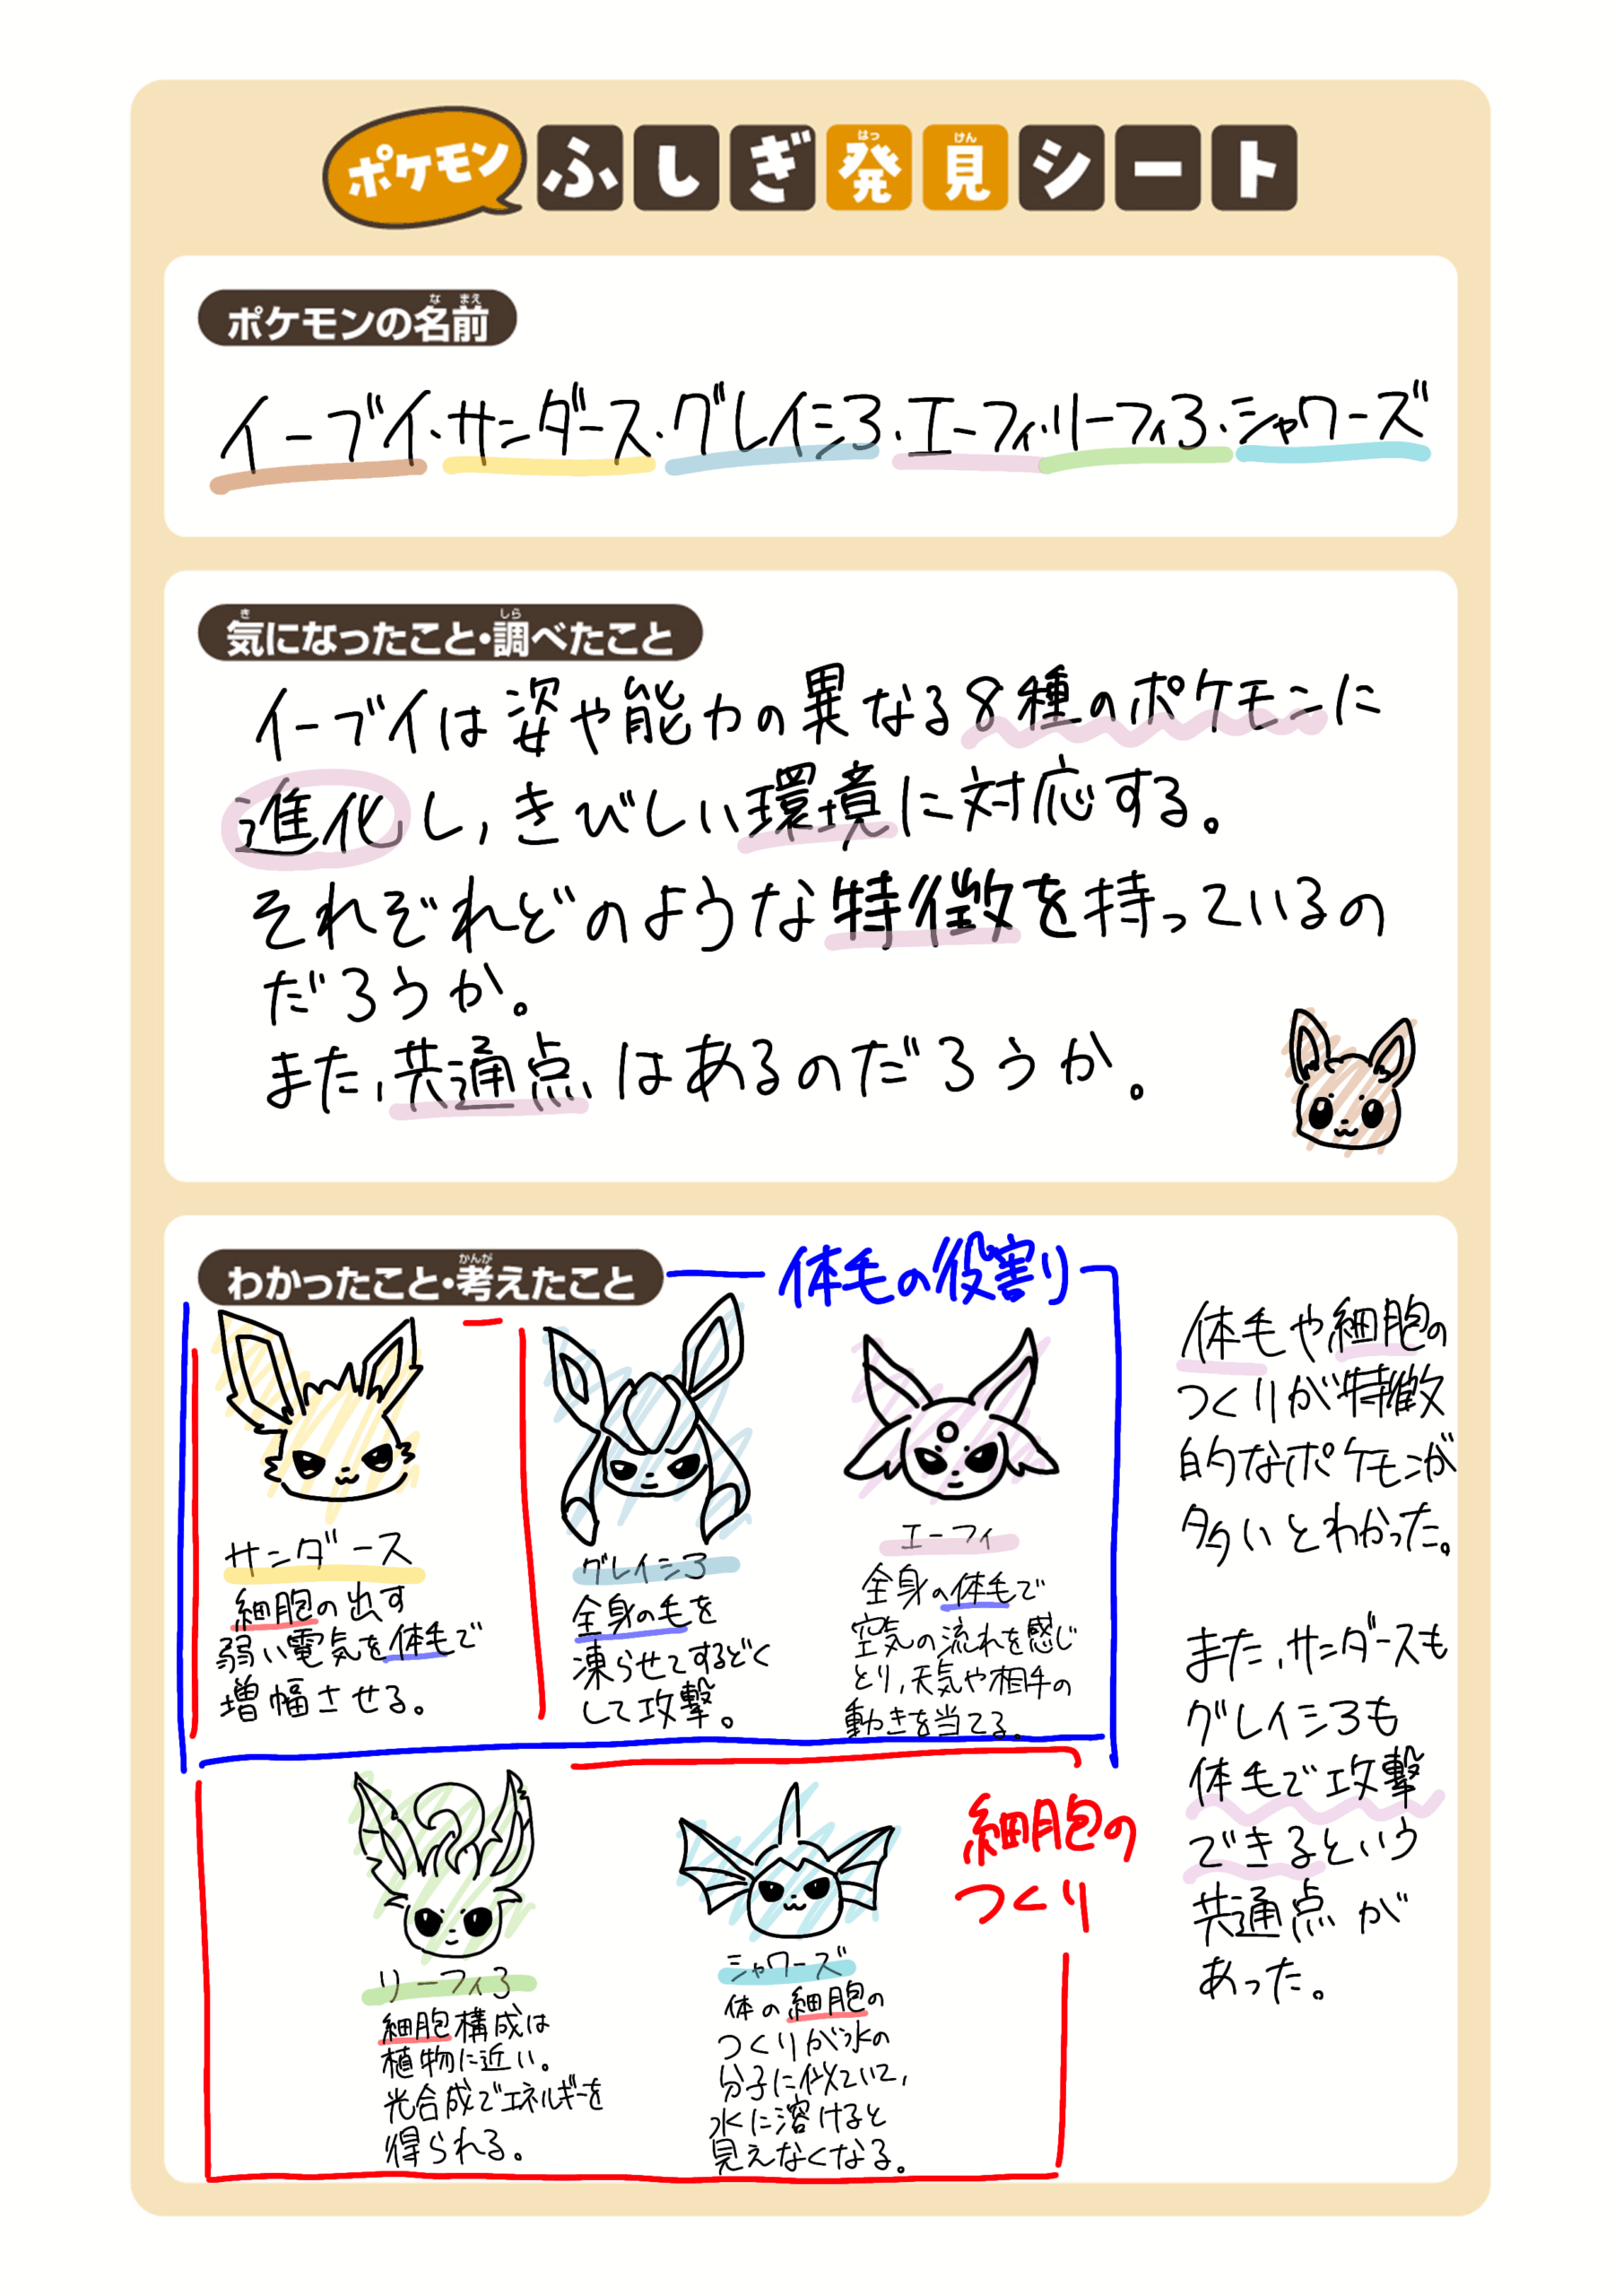 ポケモン ふしぎ発見シート
はっ けん
な まえ
ポケモンの名前
イーブイ・サンダース・グレイシア・エーフィ・リーフィア・シャワーズ
き しら
気になったこと・調べたこと
イーブイは姿や能力の異なる8種のポケモンに
進化し、きびしい環境に対応する。
それぞれどのような特徴を持っているの
だろうか。
また、共通点はあるのだろうか。
かんが
わかったこと・考えたこと
体毛の役割り
サンダース
細胞の出す
弱い電気を体毛で
増幅させる。
グレイシア
全身の毛を
凍らせてするどく
して攻撃。
エーフィ
全身の体毛で
空気の流れを感じ
とり、天気や相手の
動きを当てる。
細胞の
つくり
リーフィア
細胞構成は
植物に近い。
光合成でエネルギーを
得られる。
シャワーズ
体の細胞の
つくりが水の
分子に似ていて、
水に溶けると
見えなくなる。
体毛や細胞の
つくりが特徴
的なポケモンが
多いとわかった。
また、サンダースも
グレイシアも
体毛で攻撃
できるという
共通点が
あった。